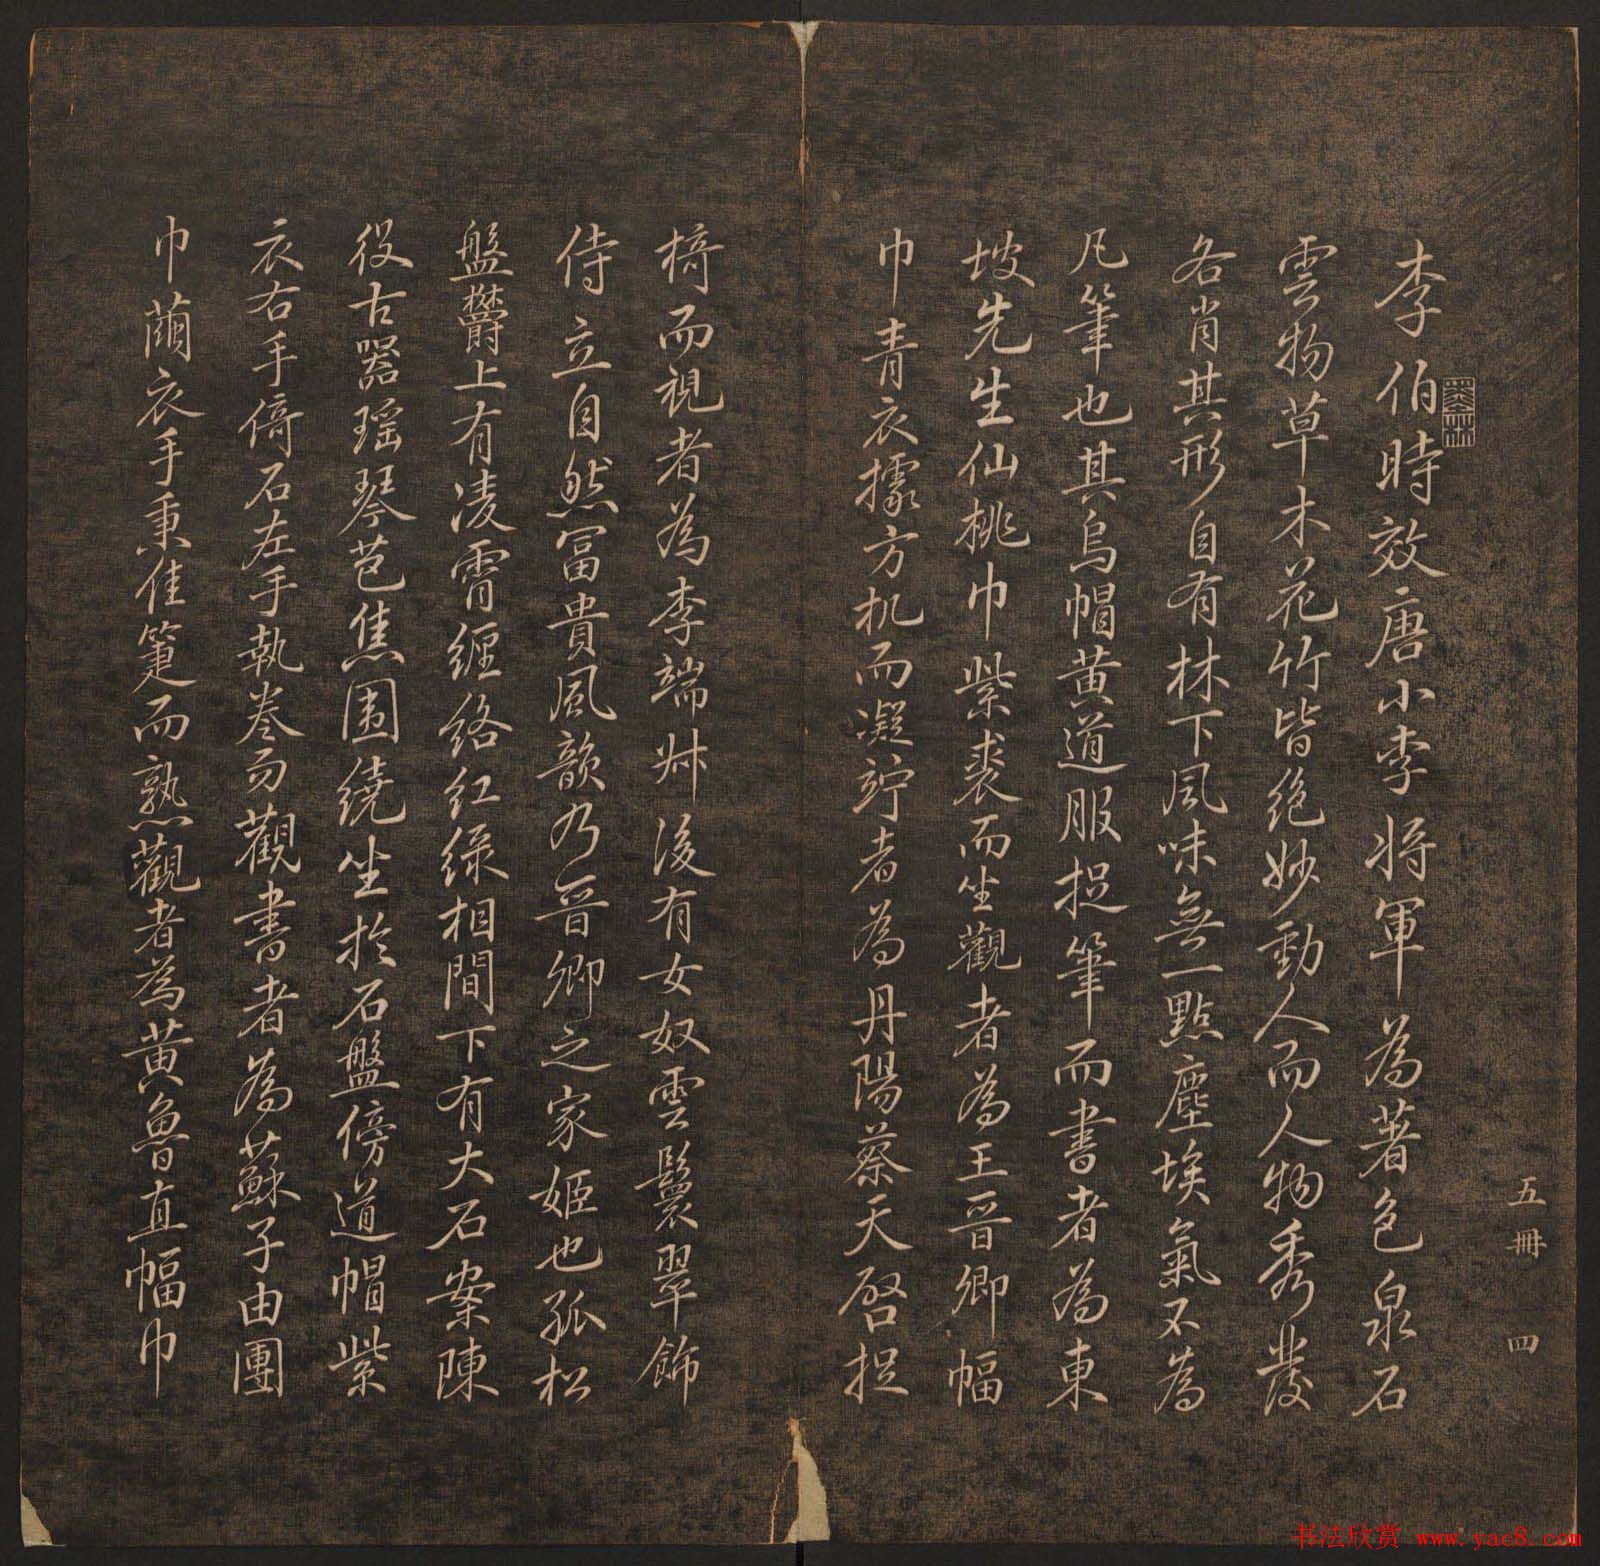 李伯時效唐小李將軍為著色泉石
雲物草木花竹皆絕妙動人而人物秀發
各肖其形自有林下風味無一點塵埃氣不為
凡筆也其烏帽黃道服捉筆而書者為東
坡先生仙桃巾紫裘而坐觀者為王晉卿幅
巾青衣據方机而凝竚者為丹陽蔡天啓捉
椅而視者為李端叔後有女奴雲鬟翠飾
侍立自然冨貴風韻乃晉卿之家姬也孤松
盤欝上有凌霄纏絡紅綠相間下有大石案陳
设古器瑶琴芭焦圍繞坐於石盤傍道帽紫
衣右手倚石左手執卷而觀書者為蘇子由團
巾繭衣手秉佳箑而熟觀者為黃魯直幅巾
墨林
五冊 四
书法欣赏 www.yac8.com